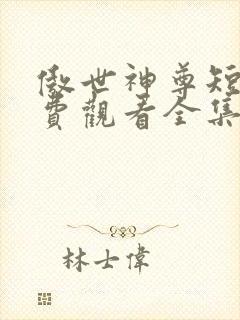 傲世神尊短
費觀看全集
林士偉